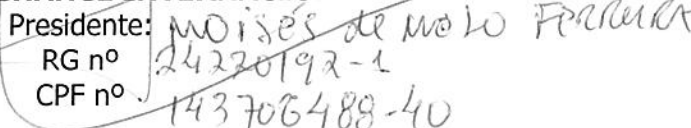 Presidente: Moises de Melo Ferreira
RG nº 24220192-1
CPF nº 143706488-40